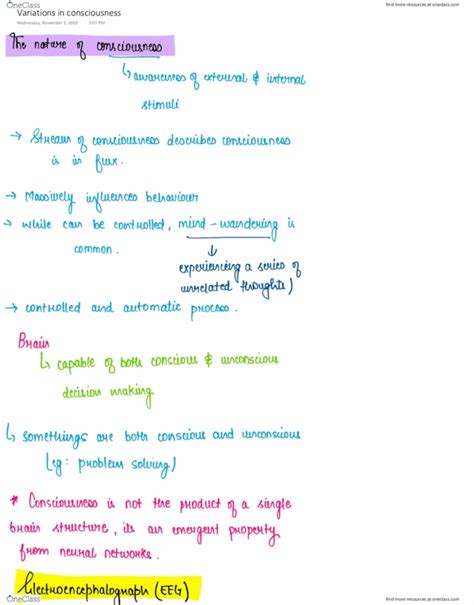 OneClass
find more resources at oneclass.com
Variations in consciousness
Wednesday, November 2, 2022 1:07 PM
The nature of consciousness
↳ awareness of external & internal
stimuli
→ Stream of consciousness describes consciousness
is in flux.
→ Massively influences behaviour
→ while can be controlled, mind-wandering is
common.
↓
experiencing a series of
unrelated thoughts)
→ controlled and automatic process.
Brain
↳ capable of both conscious & unconscious
decision making
↳ somethings are both conscious and unconscious
(eg: problem solving)
* Consciousness is not the product of a single
brain structure, its an emergent property
from neural networks.
Electroencephalograph (EEG)
OneClass
find more resources at oneclass.com